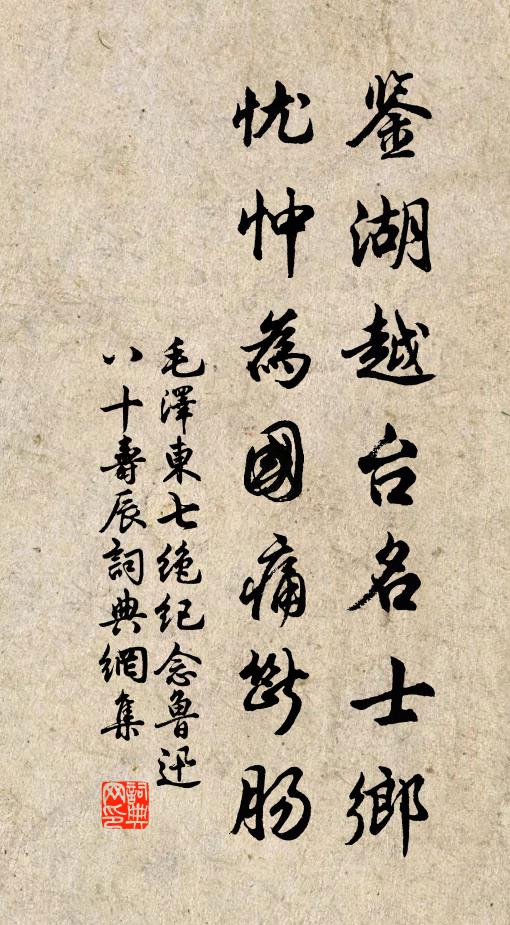 鉴湖越台名士鄉
忧忡為國痛断肠
毛澤東七绝纪念魯迅
八十壽辰詞典網集
詞典网印